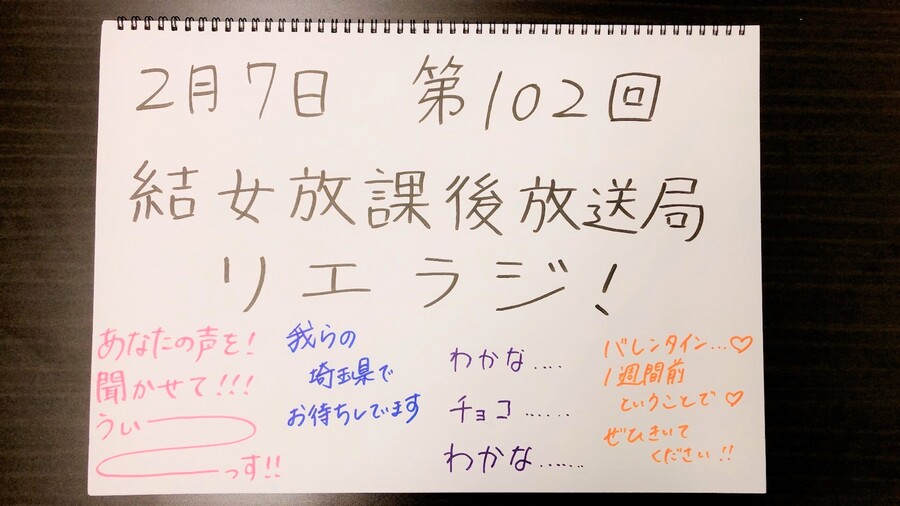 2月7日　第102回
結女放課後放送局
リエラジ!
あなたの声を!
聞かせて!!!
うぃー
っす!!
我らの
埼玉県で
お待ちしています
わかな....
チョコ......
わかな......
バレンタイン...♡
1週間前
ということで♡
ぜひきいて
ください!!